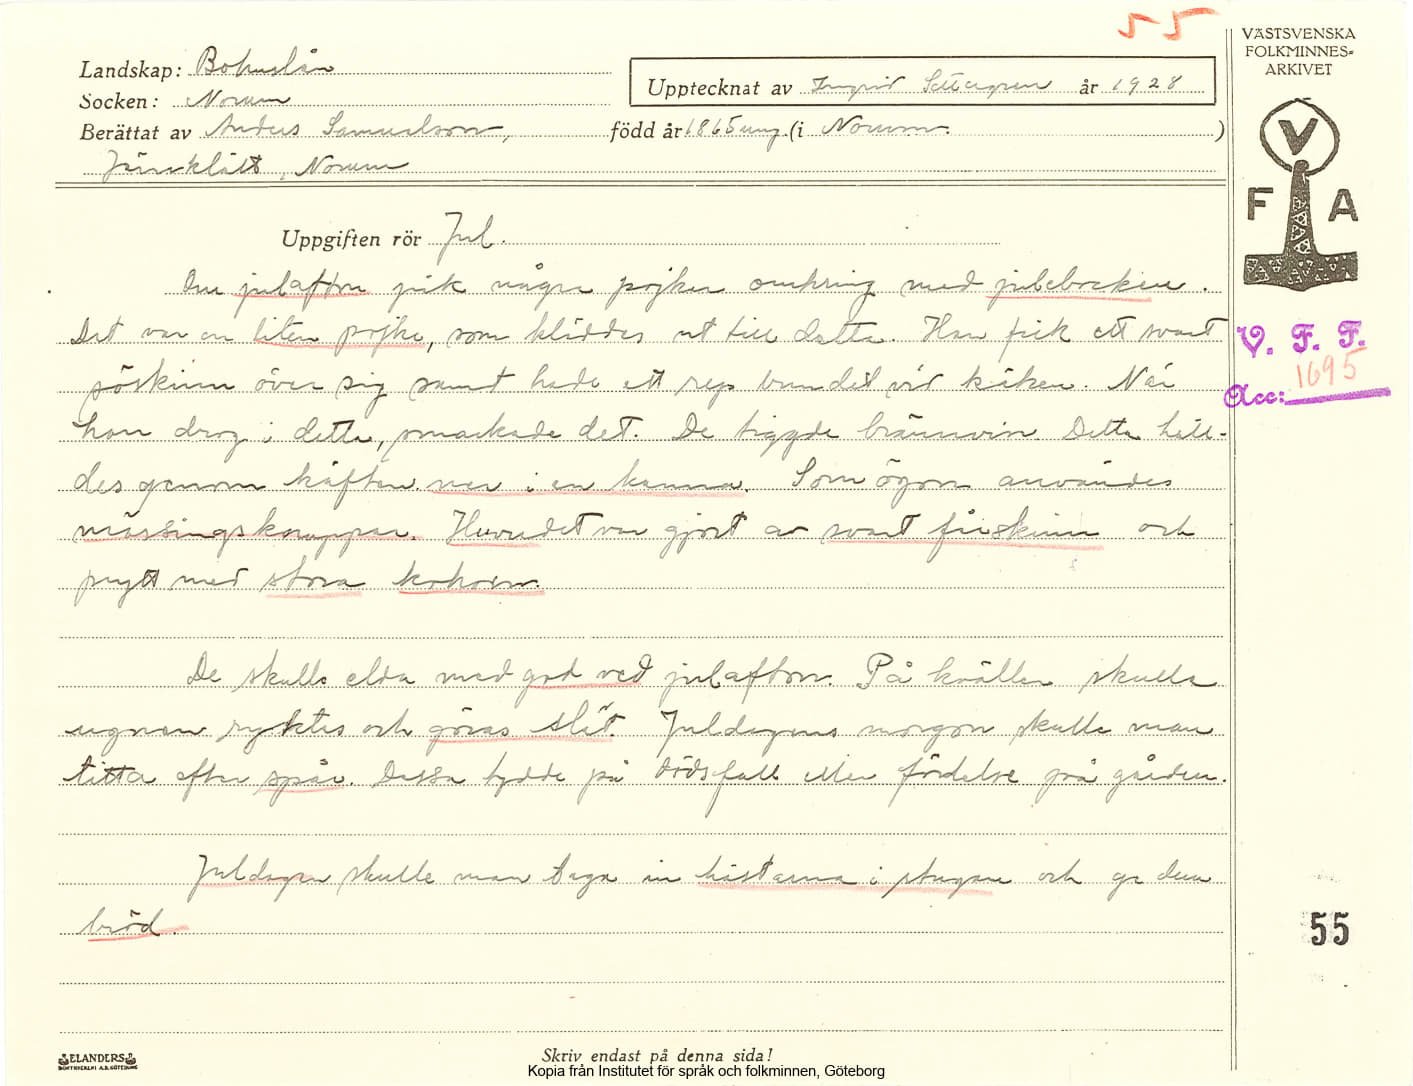 55
VÄSTSVENSKA
FOLKMINNES-
ARKIVET
Landskap: Bohuslän
Socken: Norum
Upptecknat av Ingrid år 1928
Berättat av Anders Samuelson, född år 1865 (i Norum.)
Norum
V
F A
Uppgiften rör Jul.
Om julafton gick några pojkar omkring med julebocken.
Det var en liten pojke, som kläddes ut till detta. Han fick ett svart
fåskinn över sig samt hade ett rep bundet vid käken. När
han drog i detta, smackade det. De tiggde brännvin. Detta häll-
des genom käften ner i en kanna. Som ögon användes
mässingsknappar. Huvudet var gjort av svart fårskinn och
prytt med stora kohorn.
De skulle elda med god ved julafton. På kvällen skulle
ugnen ryktes och göras slät. Juldagens morgon skulle man
titta efter spår. Dessa tydde på dödsfall eller födelse på gården.
Juldagen skulle man taga in hästarna i stugan och ge dem
bröd.
V. F. F.
1695
Acc:
55
ELANDERS
BOKTRYCKERI A.B. GÖTEBORG
Skriv endast på denna sida!
Kopia från Institutet för språk och folkminnen, Göteborg